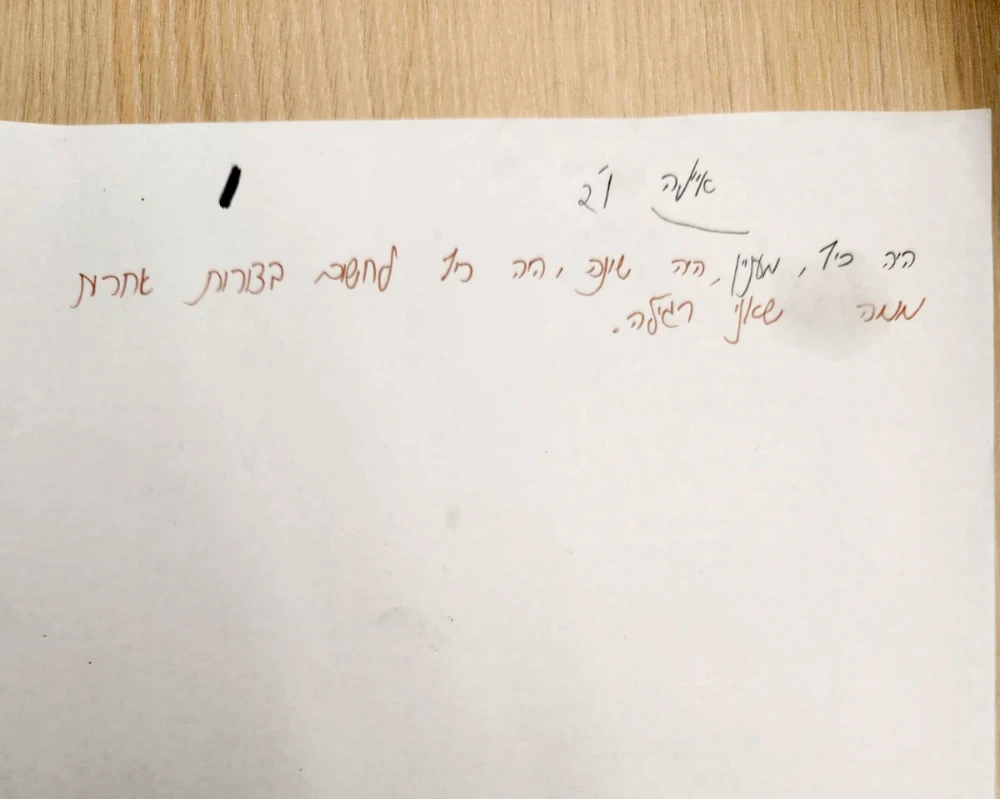 איילה ו'2
היה כיף, מעניין, היה שונה, היה כיף לחשוב בצורות אחרות
ממה שאני רגילה.